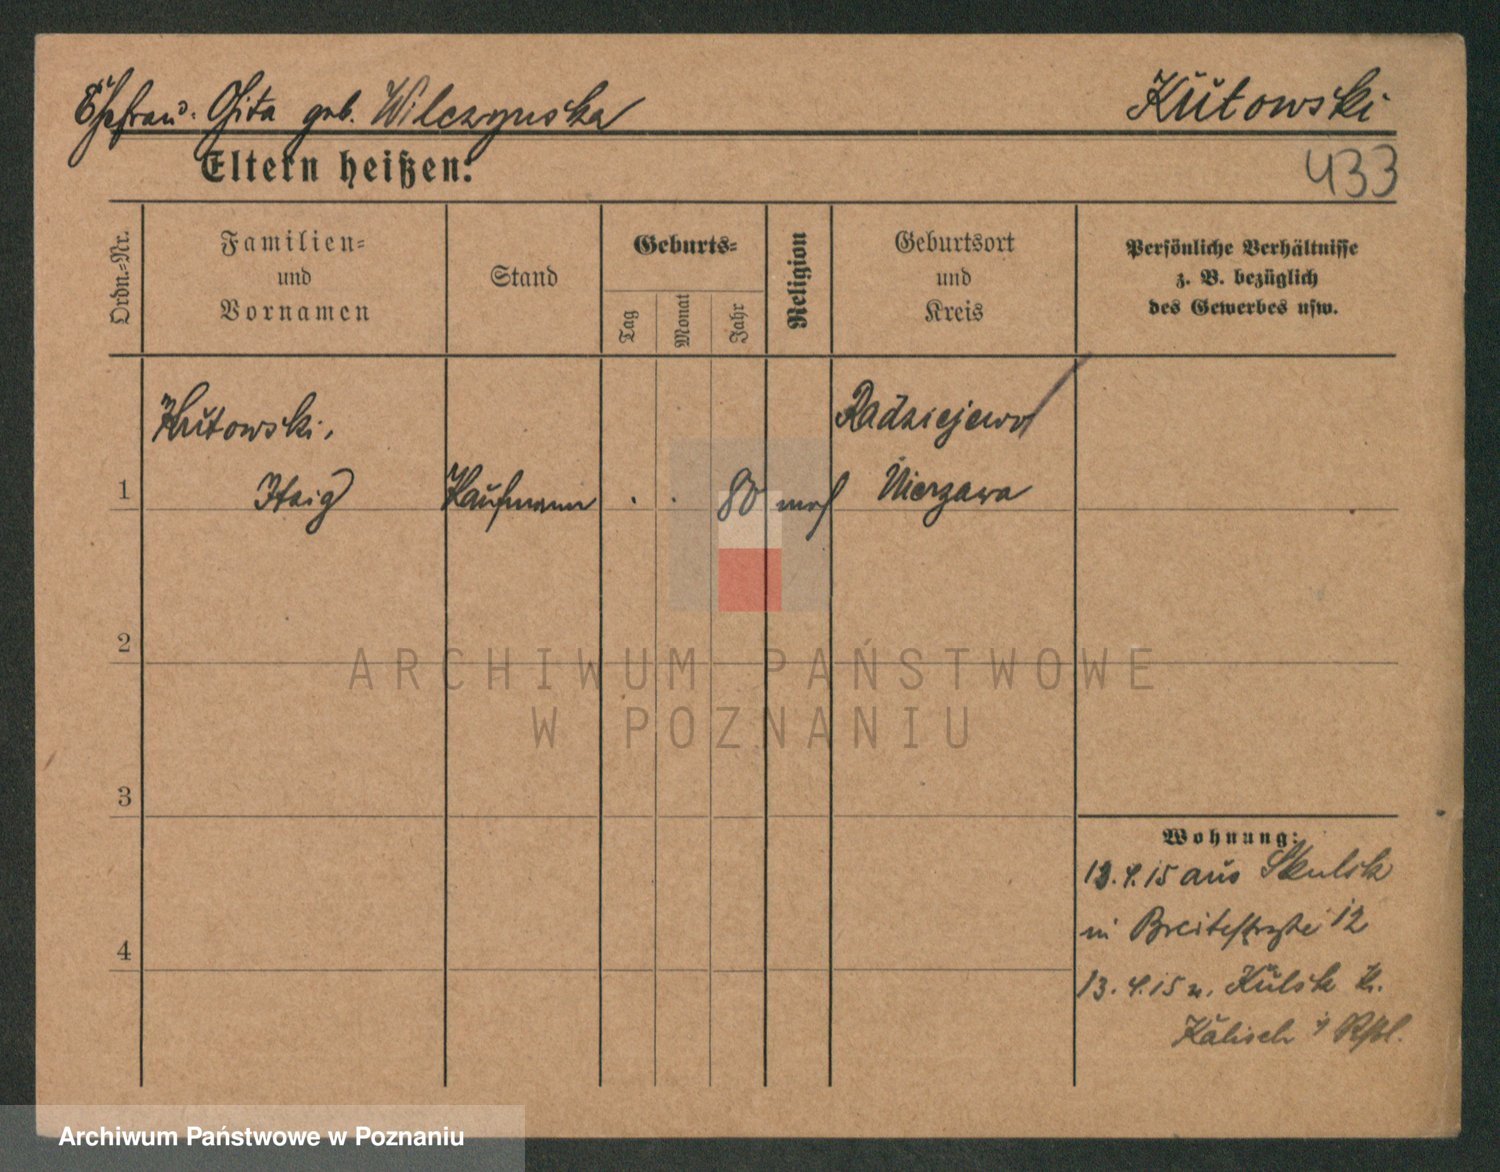 Ehefrau: Gita geb. Wilczynska
Kutowski
433
Eltern heißen:
Ordn.-Nr.
Familien-
und
Vornamen
Stand
Geburts-
Tag
Monat
Jahr
Religion
Geburtsort
und
Kreis
Persönliche Verhältnisse
z. B. bezüglich
des Gewerbes usw.
Kutowski,
Radziejewo
1
Itzig
Kaufmann
80
mos
Nierzawa
2
ARCHIWUM PAŃSTWOWE
W POZNANIU
3
Wohnung:
13.4.15 aus Skulsk
in Breitestraße 12
13.4.15 n. Kulsk K.
Kalisch
4
Archiwum Państwowe w Poznaniu